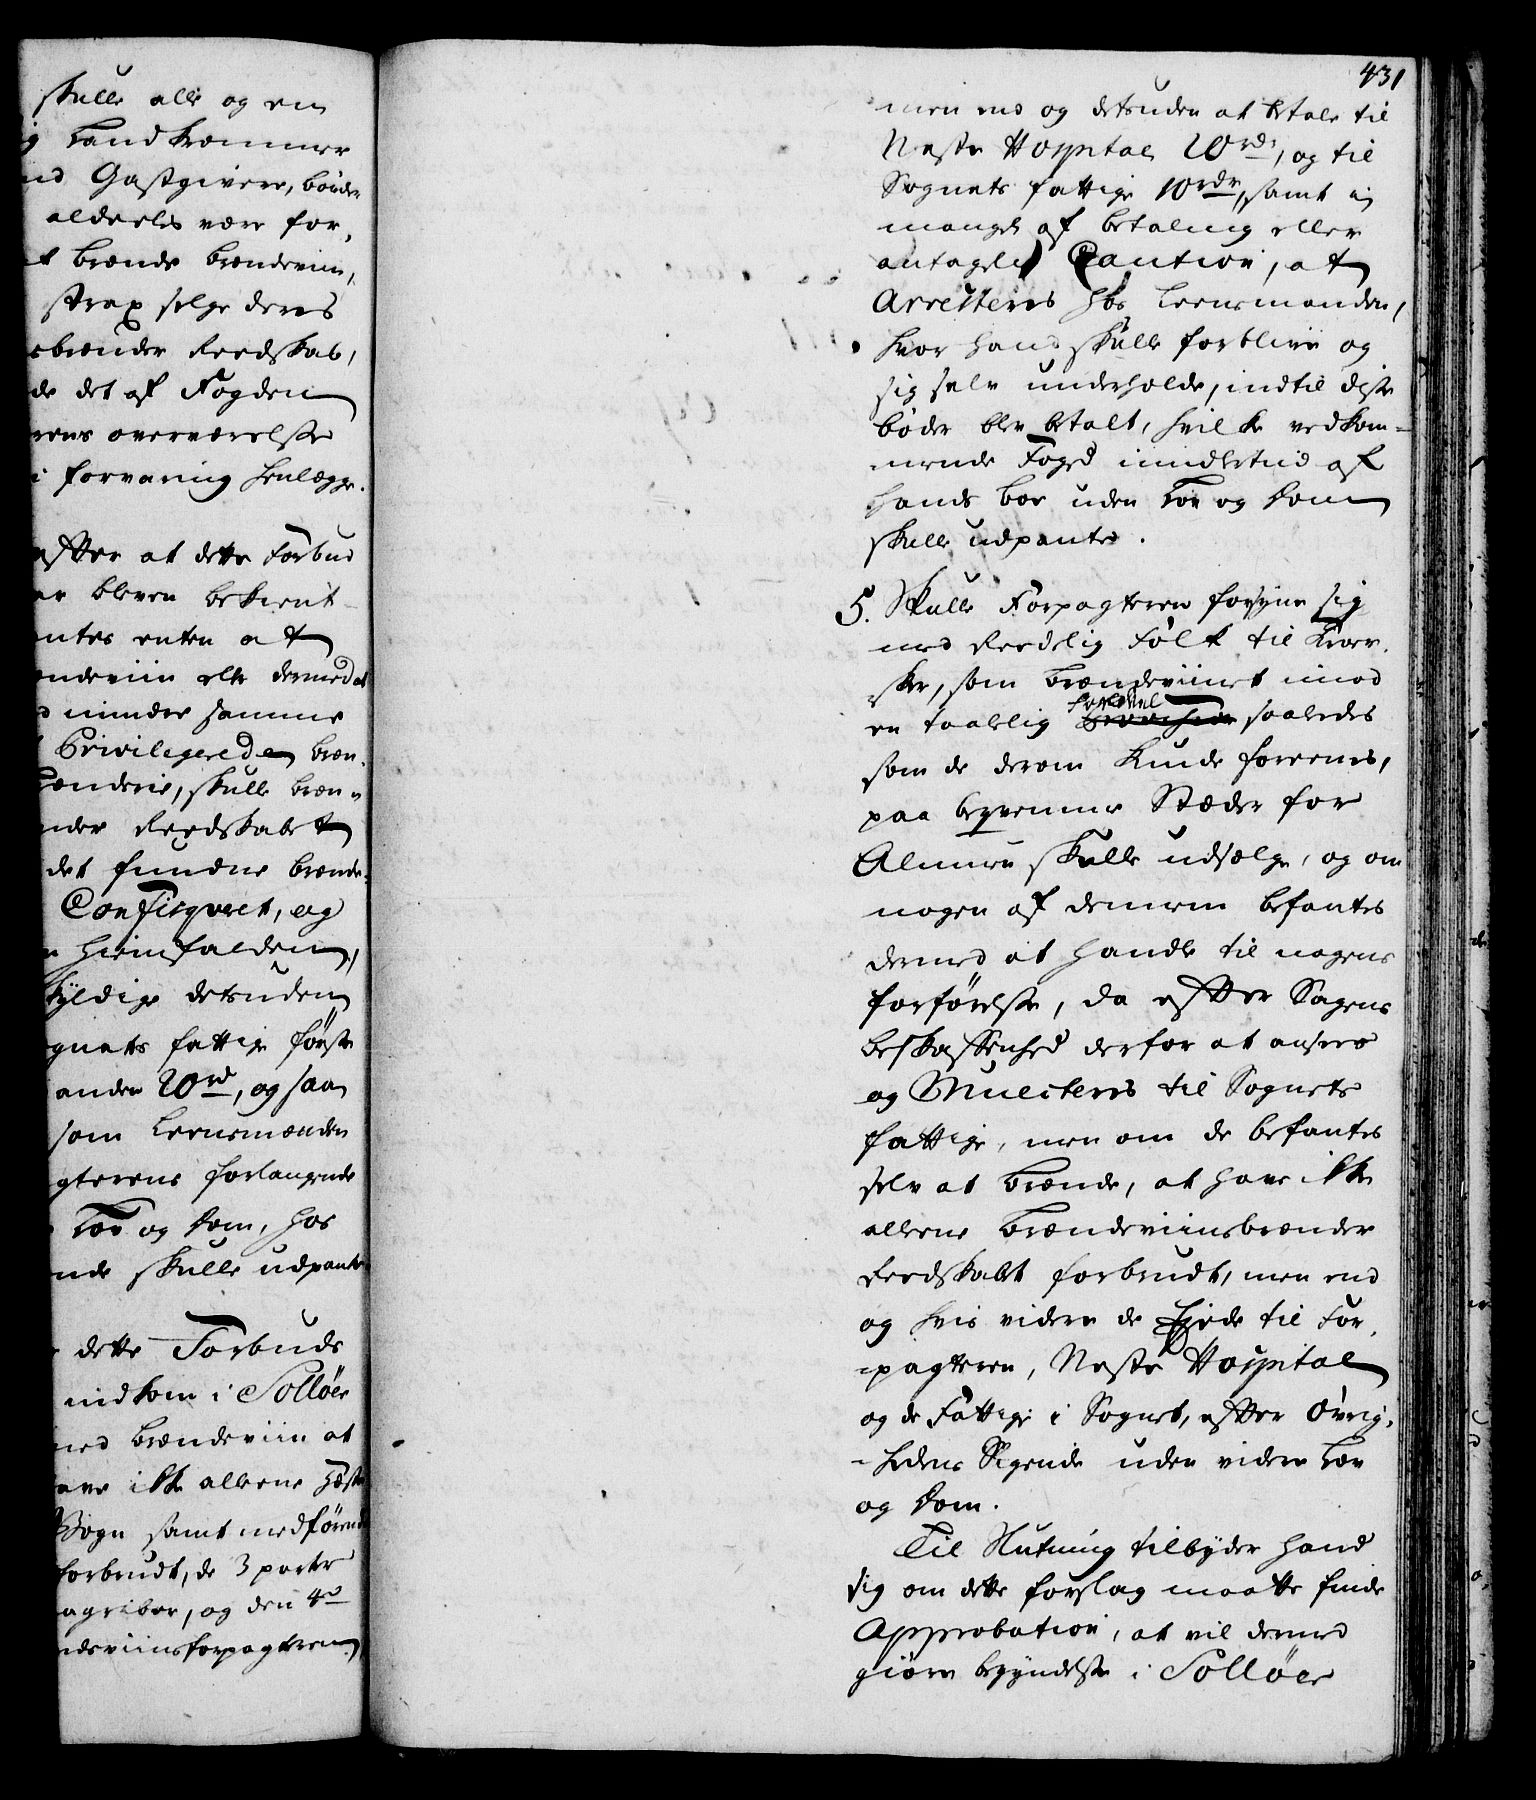 skulle alle og en
g Landkræmmer
nd Gastgivere, bønder
aldeeles være for,
t brænde brændeviin,
strax selge deres
sbrænder Reedskab,
de det af Fogden
rens overværelse
i forvaring henlægge.
efter at dette Forbud
ar bleven bekient-
antes enten at
ændeviin eller dermed at
d mindre samme
Privilegerede bræn-
hænderie, skulle bræn-
nder Reedskabet
det fundne brænde-
Confisqveret, og
n hiemfalden,
kyldige desuden
gnets fattige første
anden 20 rd, og saa
som Leensmanden
gterens forlangende
Lov og Dom, hos
nde skulle udpante
dette Forbuds
indkom i Solløer
med brændeviin at
ave ikke alleene Hæste
Vogn samt medførende
forbrudt, de 3 parter
agriber, og den 4de
ndeviinsforpagteren
431
men end og desuden at betale til
Neste Hospital 20 rd, og til
Sognets fattige 10 rdr, samt i
mangel af betaling eller
antagelig Caution, at
Arresteres hos Leensmanden,
hvor hand skulle forblive og
sig selv underholde, indtil disse
bøder blev betalt, hvilke vedkom-
mende Foged imidlertiid af
hands boe uden Lov og Dom
skulle udpante.
5. Skulle Forpagteren forsyne sig
med Reedelig Folk til Kroer-
ske, som brændeviinet imod
en taalelig fordeel saaledes
som de derom kunde foreenes,
paa beqvemme Stæder for
Almuen skulle udsælge, og om
nogen af dennem befantes
dermed at handle til nogens
forførelse, da efter Sagens
beskaffenhed derfor at ansees
og Mulcteres til Sognets
fattige, men om de befantes
selv at brænde, at have ikke
alleene brændeviinsbrænder
Reedskabet forbrudt, men end
og hvis videre de Ejede til For-
pagteren, Neste Hospital
og de Fattige i Sognet, efter Øvrig-
hedens Sigende uden videre Lov
og Dom.
Til Slutning tilbyder hand
sig om dette forslag maatte finde
Approbation, at vil dermed
giøre begyndelse i Solløer